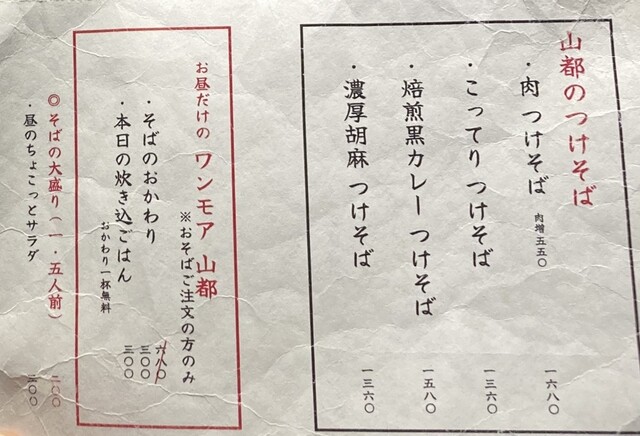 山都のつけそば
・肉 つけそば 肉増 五五〇 一六八〇
・こってり つけそば 一三六〇
・焙煎黒カレー つけそば 一五八〇
・濃厚胡麻 つけそば 一三六〇
お昼だけの ワンモア 山都
※おそばご注文の方のみ
・そばのおかわり 六八〇 三〇〇
・本日の炊き込ごはん 三〇〇
おかわり一杯無料
◎そばの大盛り(一・五人前) 二〇〇
・昼のちょこっとサラダ 三〇〇